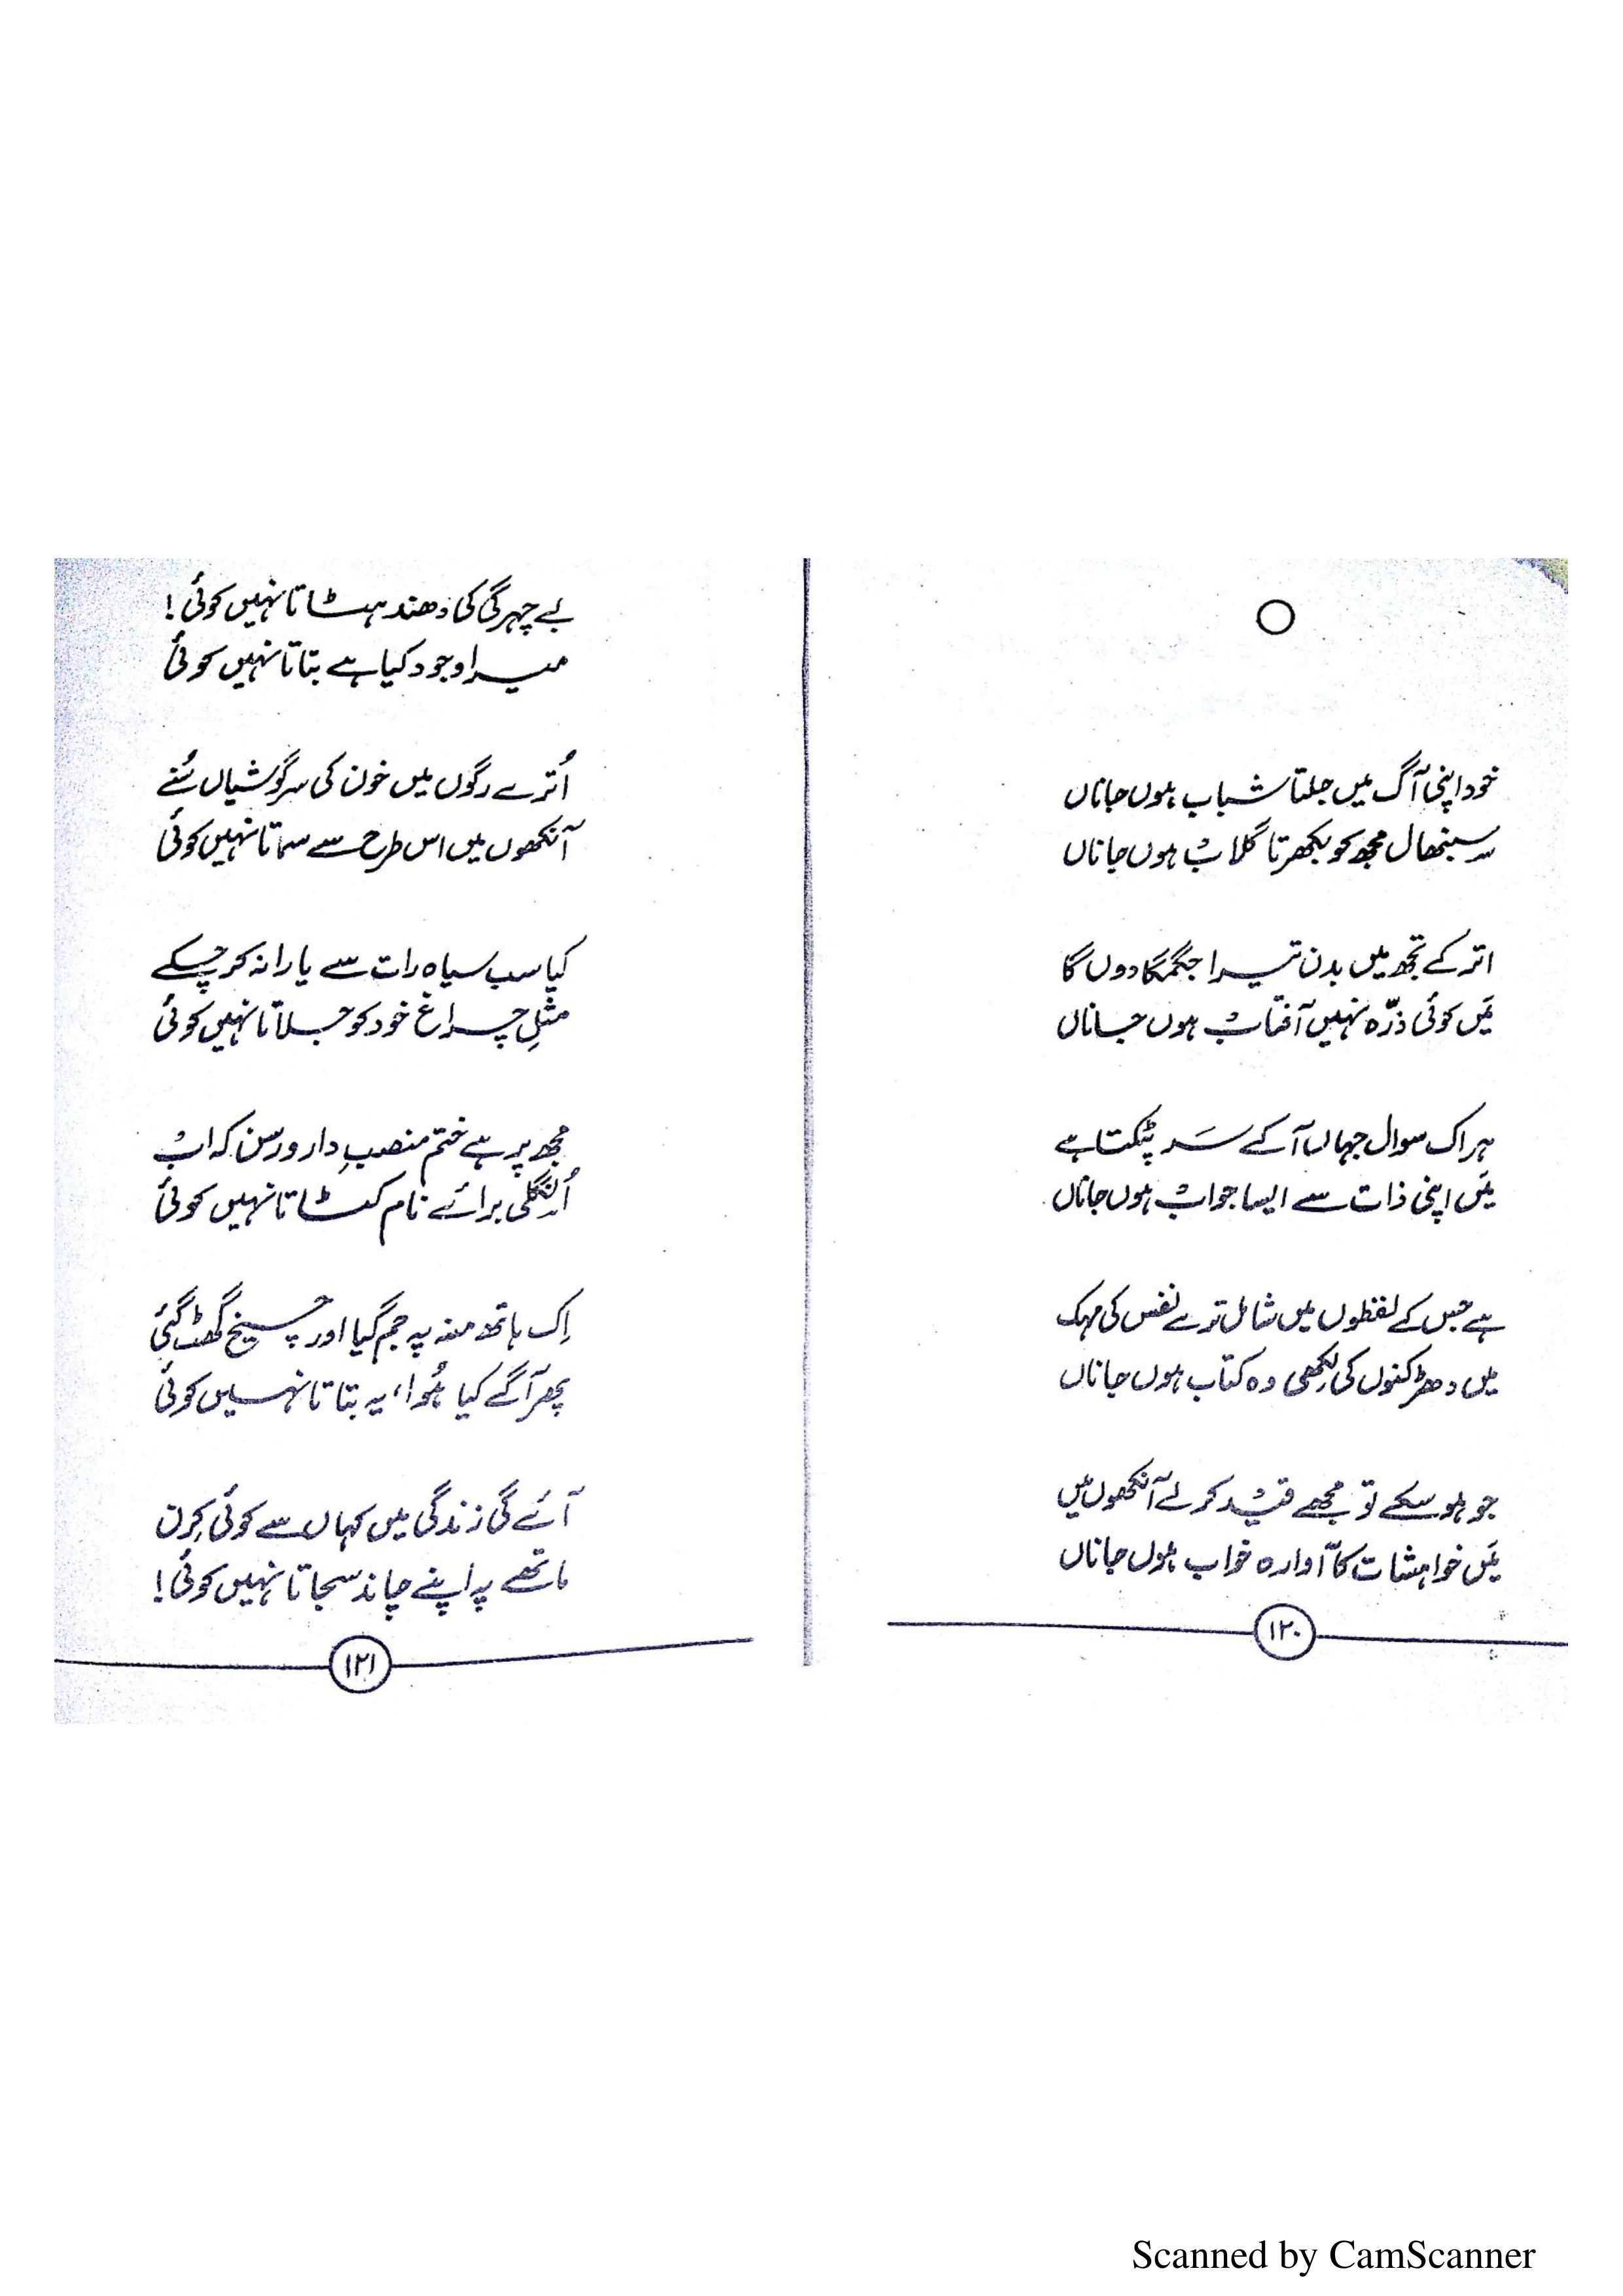 خود اپنی آگ میں جلتا شباب ہوں جاناں
سنبھال مجھ کو بکھرتا گلاب ہوں جاناں
اتر کے تجھ میں بدن تیرا جگمگا دوں گا
مَیں کوئی ذرّہ نہیں آفتاب ہوں جاناں
ہر اک سوال جہاں آ کے سَر پٹکتا ہے
مَیں اپنی ذات سے ایسا جواب ہوں جاناں
ہے جس کے لفظوں میں شامل ترے نفس کی مہک
میں دھڑکنوں کی لِکھی وہ کتاب ہوں جاناں
جو ہو سکے تو مجھے قید کر لے آنکھوں میں
مَیں خواہشات کا آوارہ خواب ہوں جاناں
۱۲۰
بے چہرگی کی دھند ہٹاتا نہیں کوئی!
میرا وجود کیا ہے بتاتا نہیں کوئی
اُترے رگوں میں خون کی سرگوشیاں سُنے
آنکھوں میں اس طرح سے سماتا نہیں کوئی
کیا سب سیاہ رات سے یارانہ کر چکے
مثلِ چراغ خود کو جلاتا نہیں کوئی
مجھ پر ہے ختم منصبِ دار و رسن کہ اب
اُنگلی برائے نام کٹاتا نہیں کوئی
اِک ہاتھ منہ پہ جم گیا اور چیخ گھٹ گئی
پھر آگے کیا ہُوا، یہ بتاتا نہیں کوئی
آئے گی زندگی میں کہاں سے کوئی کِرن
ماتھے پہ اپنے چاند سجاتا نہیں کوئی!
۱۲۱
Scanned by CamScanner